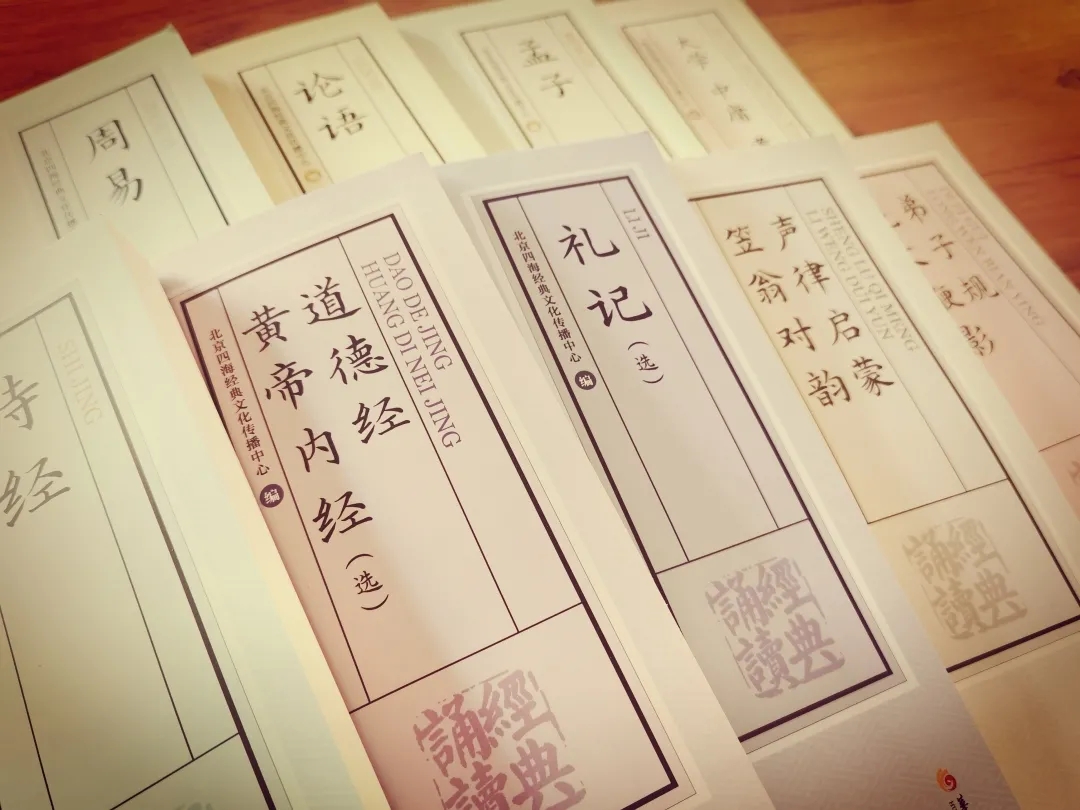 周易
论语
孟子
大学 中庸
SHI JING
经
DAO DE JING
HUANG DI NEI JING
道德经
黄帝内经（选）
北京四海经典文化传播中心 编
經典
誦讀
LI JI
礼记（选）
北京四海经典文化传播中心 编
經典
誦讀
SHENG LÜ QI MENG
LI WENG DUI YUN
声律启蒙
笠翁对韵
經典
誦讀
弟子规